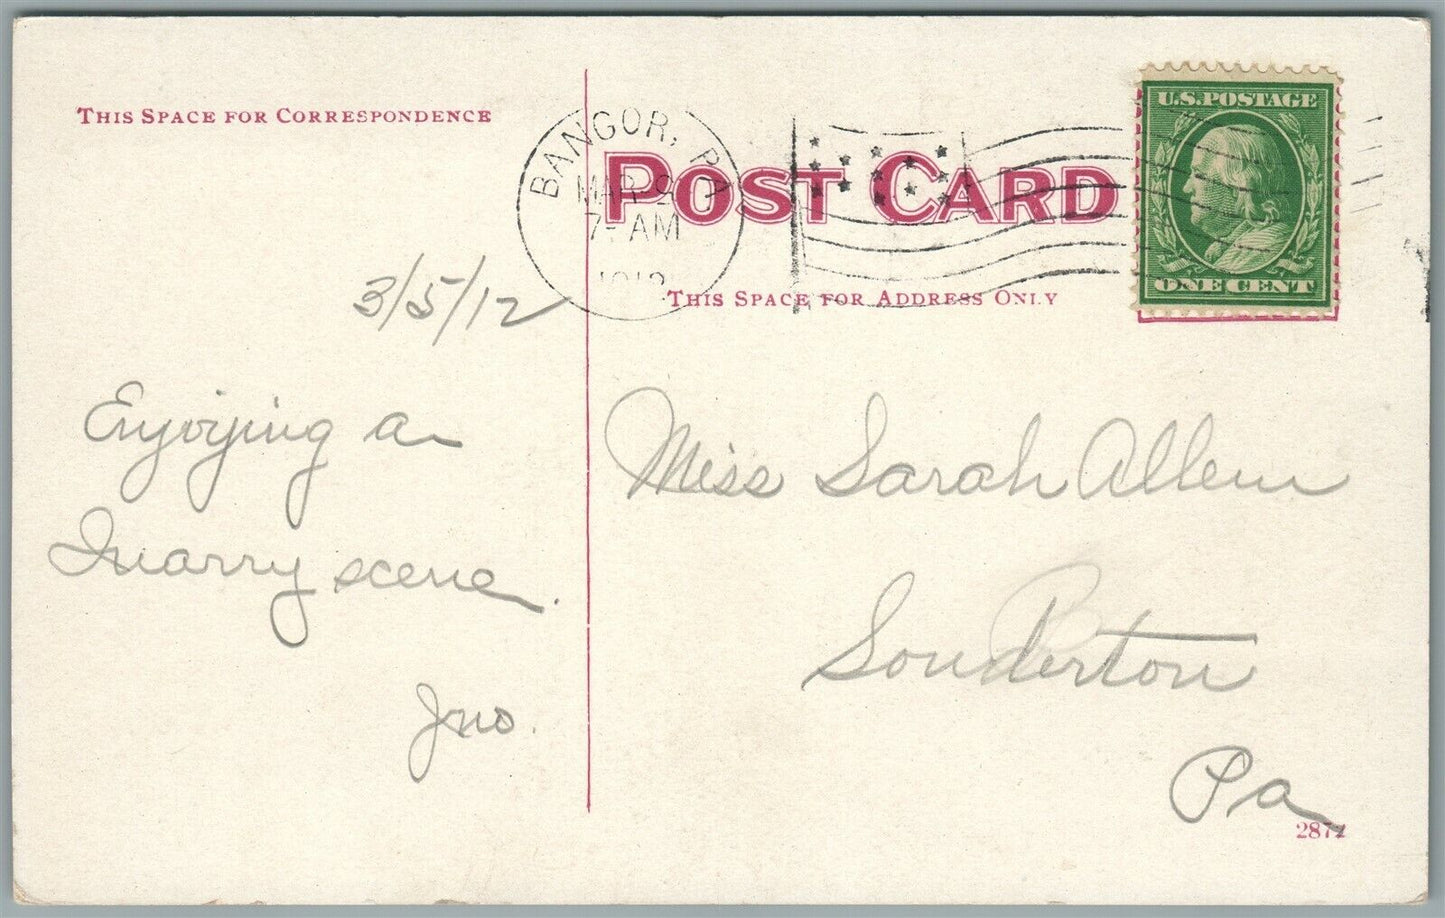 THIS SPACE FOR CORRESPONDENCE
BANGOR, PA
MAR 9
7- AM
1912
POST CARD
THIS SPACE FOR ADDRESS ONLY
U.S. POSTAGE
ONE CENT
3/5/12
Enjoying a
Quarry scene.
Jno.
Miss Sarah Allem
Souderton
Pa